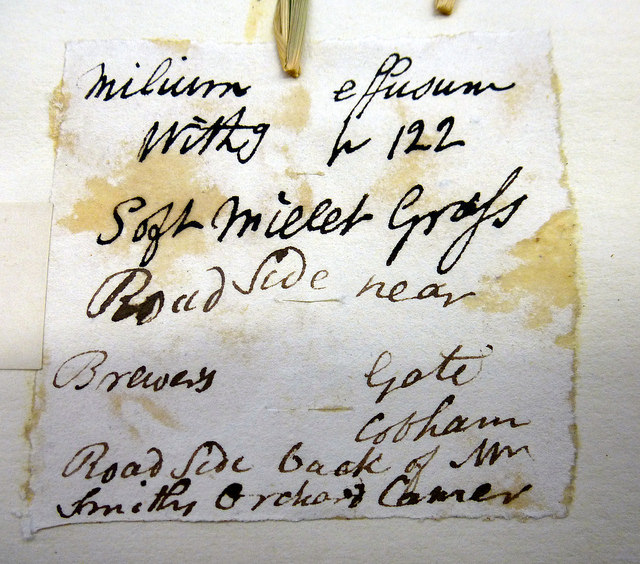 Milium effusum
Withg p 122
Soft Millet Graſs
Road Side near
Brewers Gate
Cobham
Road Side back of Mr
Smiths Orchard Camer